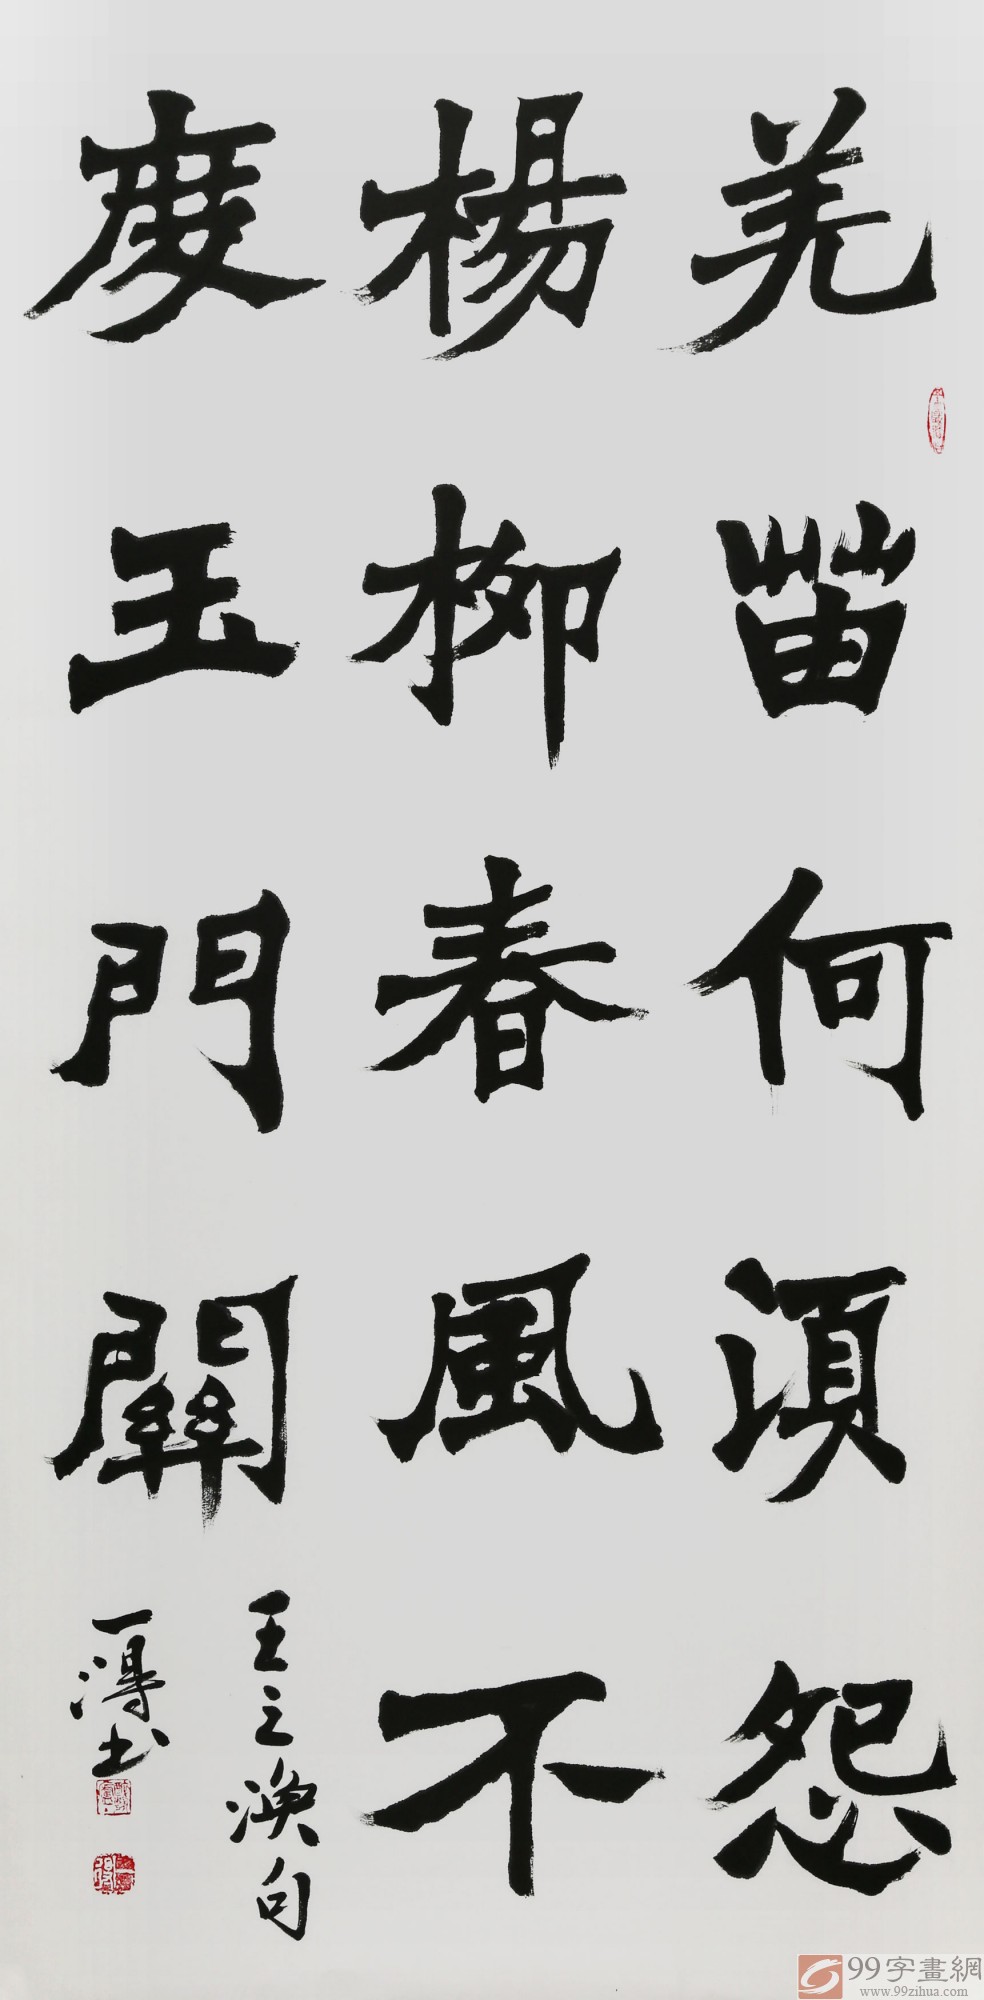 羌笛何須怨
楊柳春風不
度玉門關
王之渙句
一得书
99字畫網
www.99zihua.com